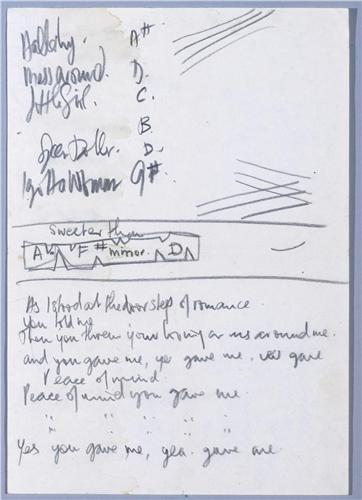 A#
Mess around. D.
Little Girl. C.
B.
D.
I got a Woman G#
Sweeter than
A F# minor D
As I stood at the door step of romance
You told me
Then you threw your loving arms around me.
and you gave me, yes gave me, yes gave
Peace of mind
Peace of mind you gave me.
" " " " "
" " " " "
Yes you gave me, yea. gave me.